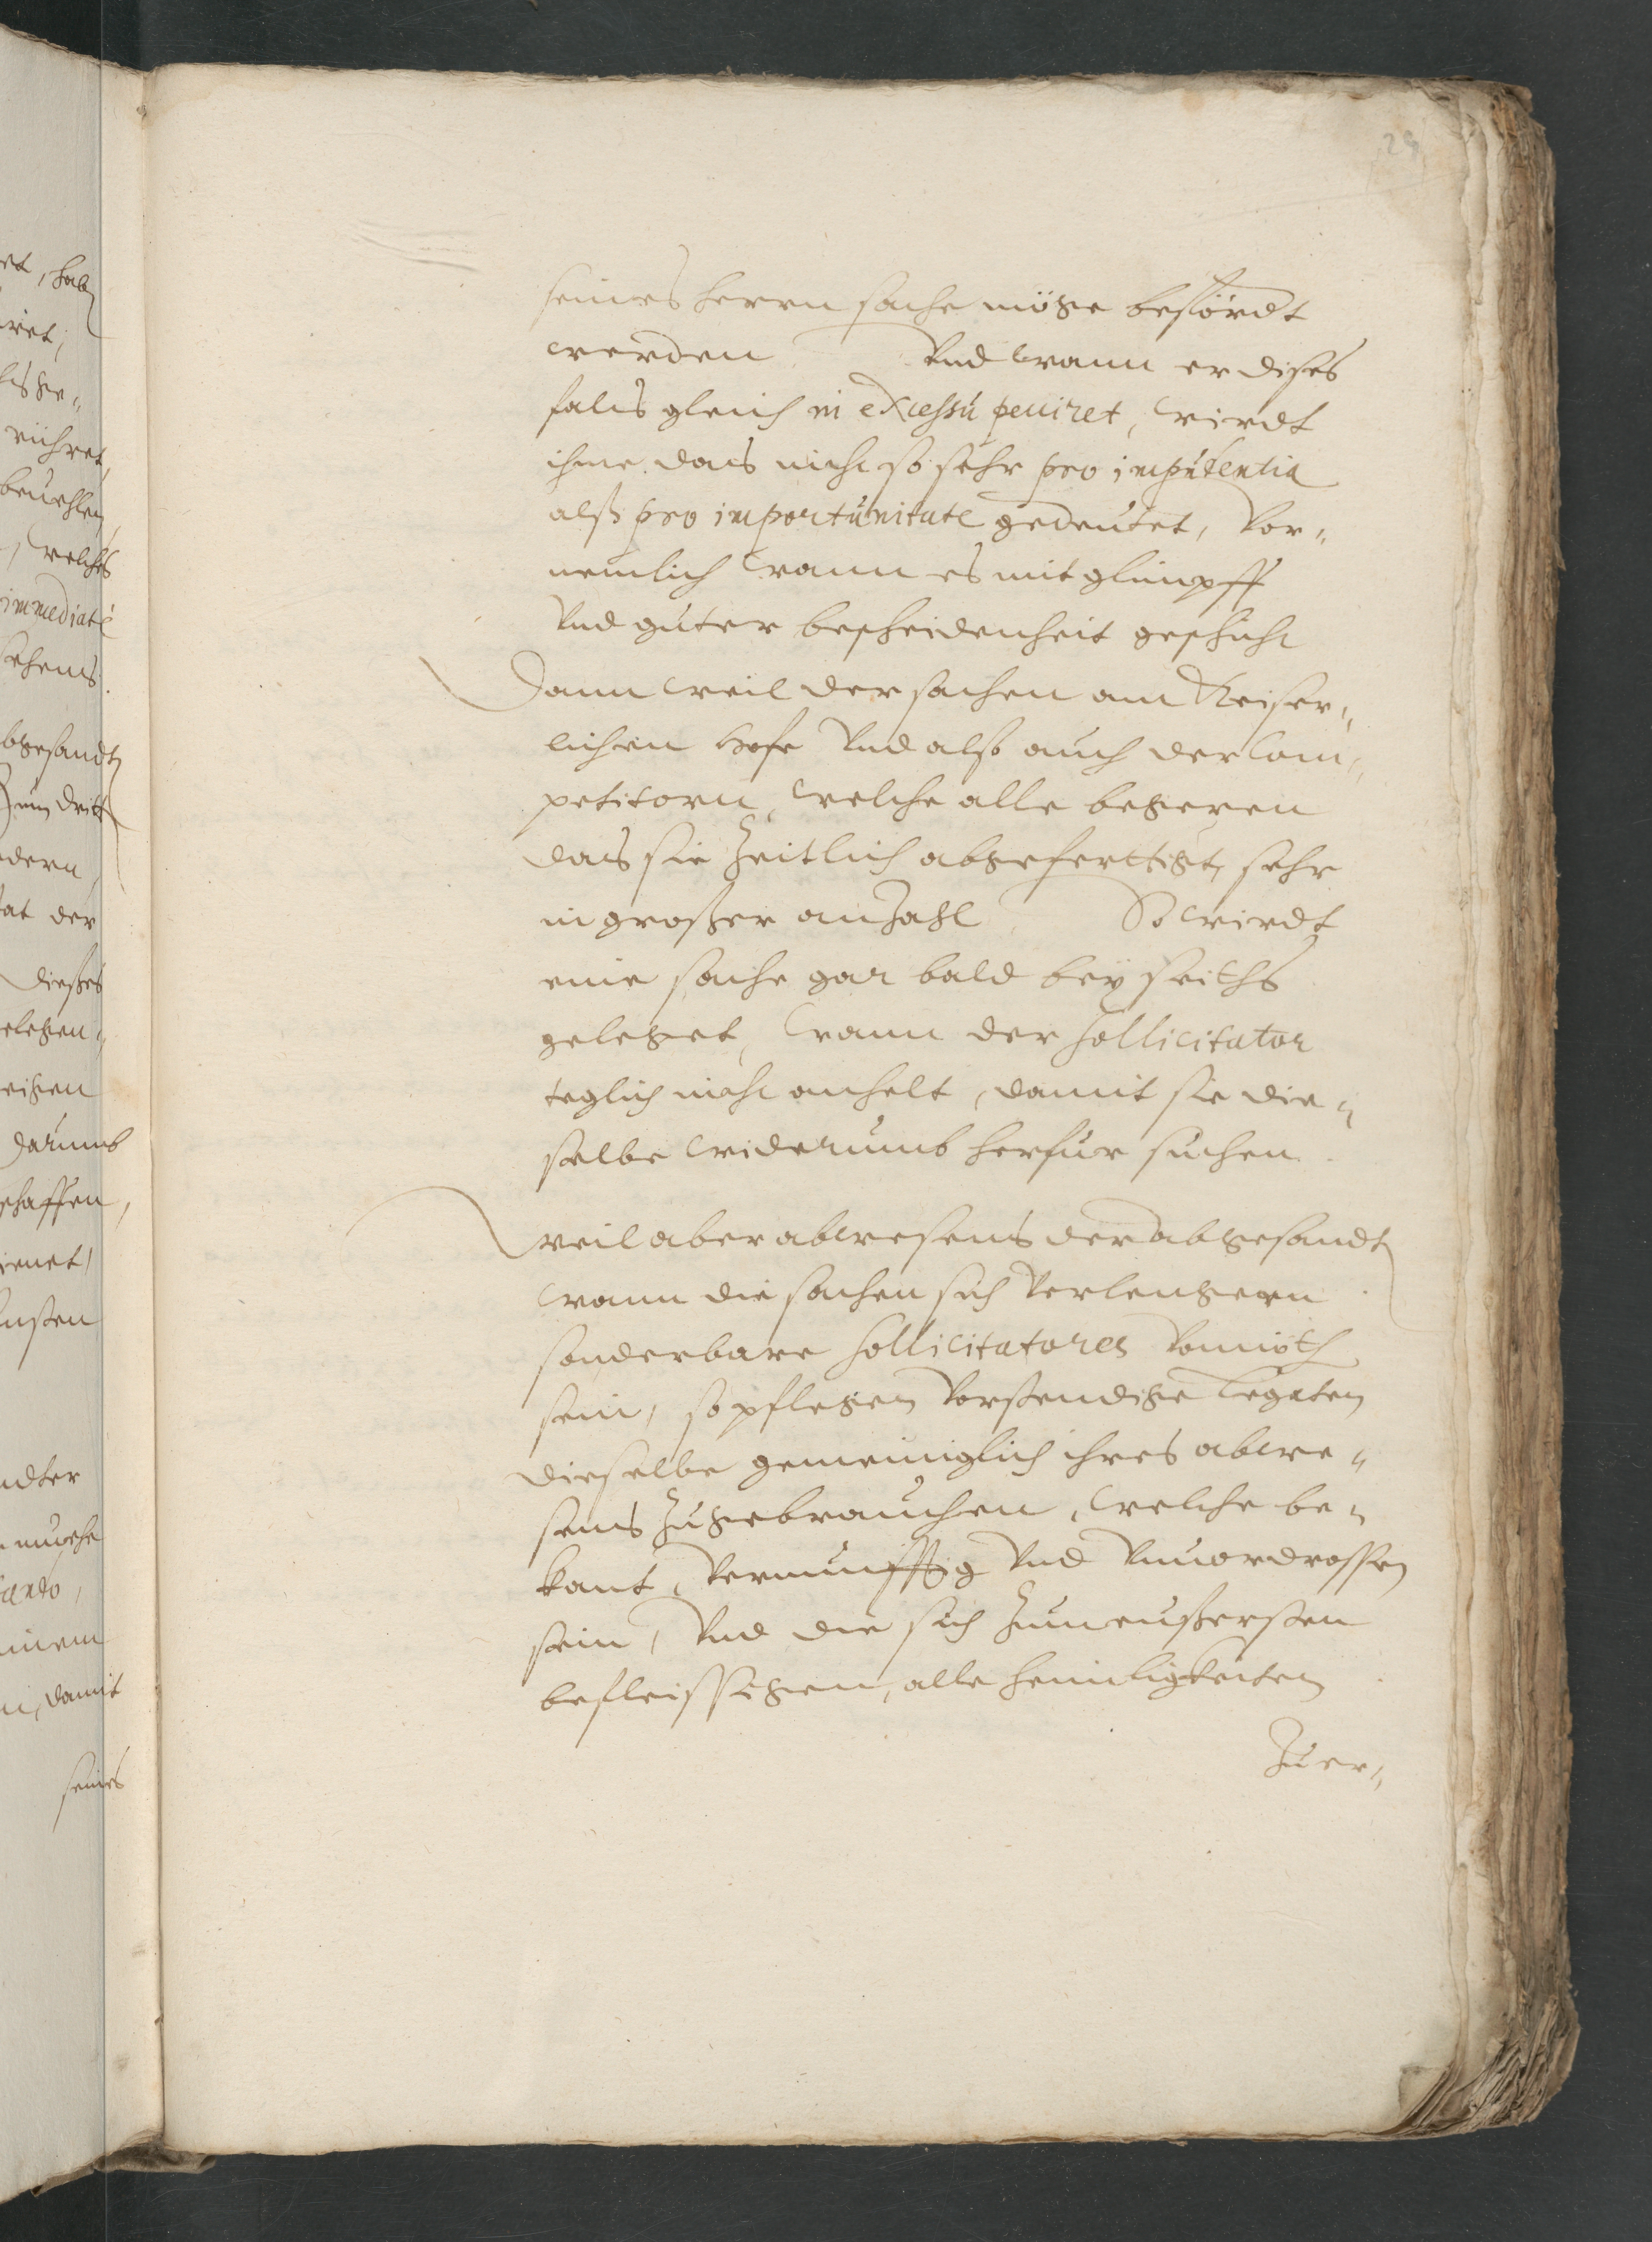 29
seines herrn sache möge befördt
werden. Vnd wann er dises
fals gleich in excessu pecciret, wirdt
ihme das nicht so sehr pro impudentia
alß pro importunitate gedeutet, Vor-
nemlich wann es mit glimpff
Vnd guter bescheidenheit geschicht
Dann weil der sachen am Keiser-
lichen Hofe Vnd alß auch der Com-
petitorn, welche alle begeren
das sie zeitlich abgefertigt, sehr
in großer anzahl, So wirdt
eine sache gar bald bey seiths
geleget, wann der Sollicitator
teglich nicht anhelt, damit sie die-
selbe widerumb herfur suchen.
Weil aber abwesens der abgesandten
wann die sachen sich verlengern
sonderbare Sollicitatores Vonnöth
sein, so pflegen Vorstendige Legaten
dieselbe gemeiniglich ihres abwe-
sens zugebrauchen, welche be-
kant, Vernunfftig Vnd Vnuordrossen
sein, Vnd die sich zum eußersten
befleissigen, alle heimligkeiten
Zuer-
et, haben
ret,
rühret
beuehlen
, welches
immediatè
sehens
abgesandten
Zum dritten
dern
at der
dießes
elegen-
eigen
Darumb
schaffen,
ienet,
ndter
muehe
einem
n, damit
seines